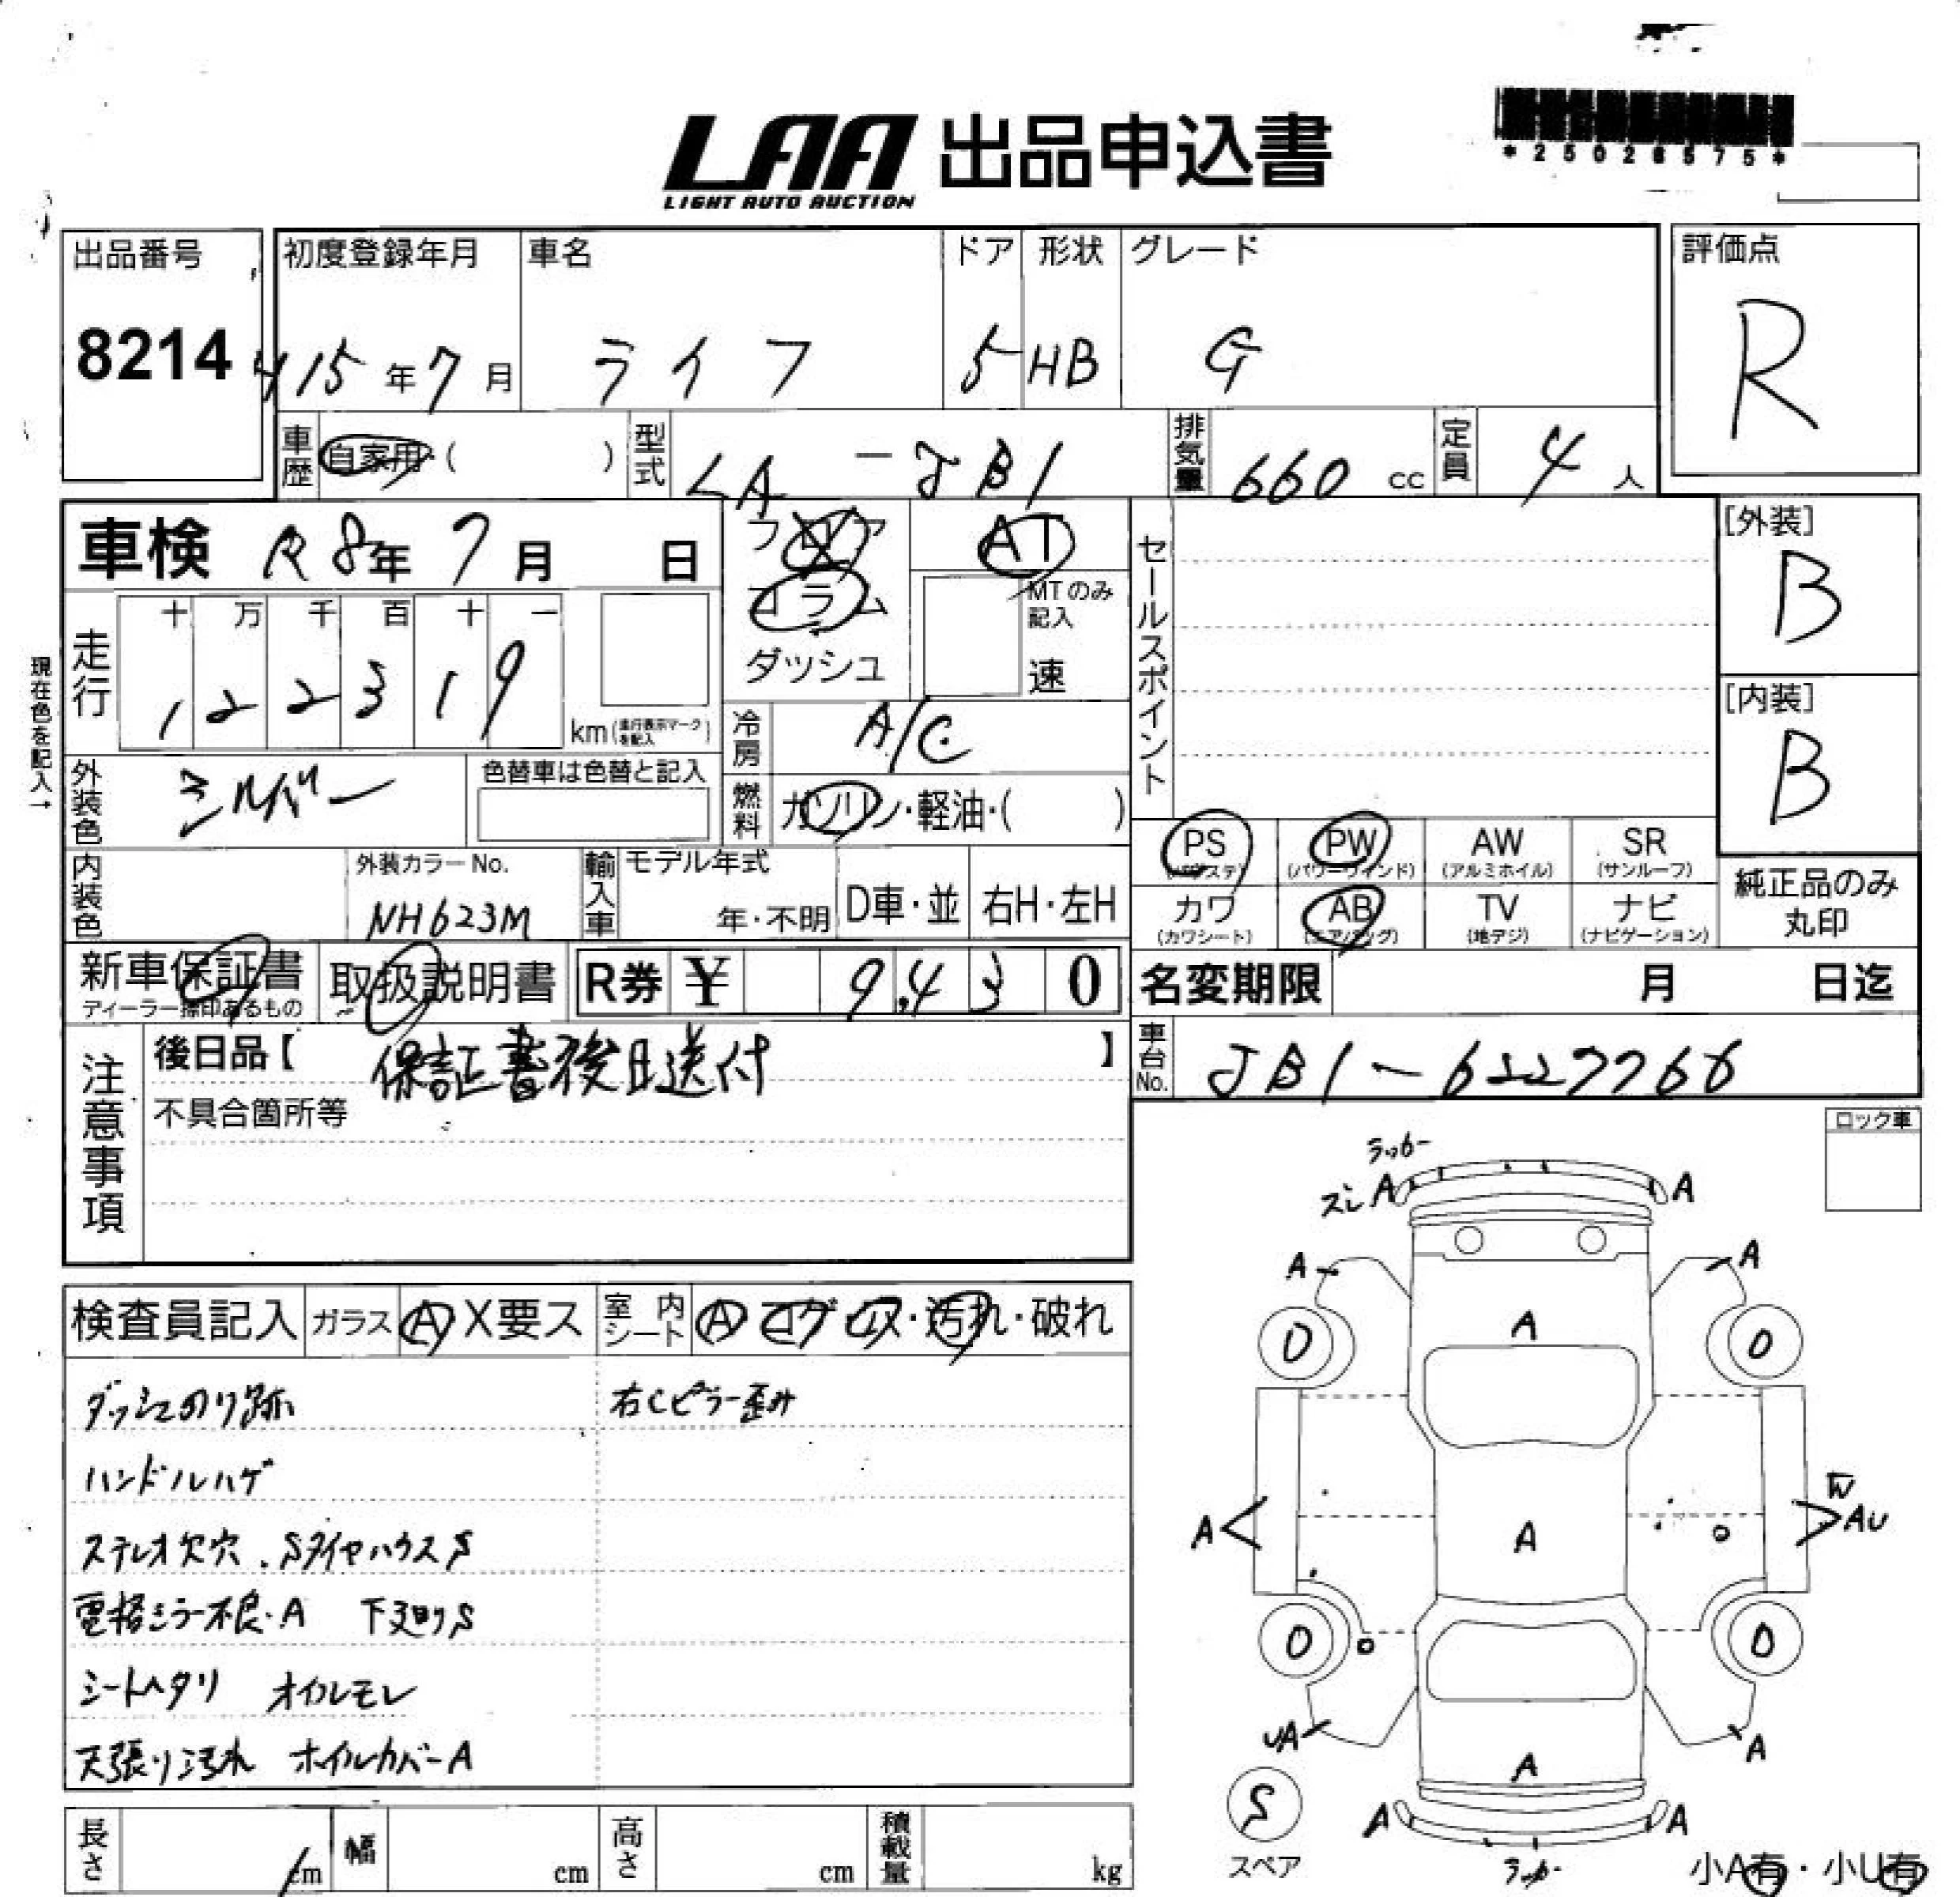 LAA 出品申込書
LIGHT AUTO AUCTION
*25026575*
出品番号
8214
初度登録年月
H15年7月
車名
ライフ
ドア
5
形状
HB
グレード
G
評価点
R
車歴
自家用・( )
型式
LA-JB1
排気量
660 cc
定員
4 人
車検 R8年7月 日
フロア
コラム
ダッシュ
AT
MTのみ記入
速
セールスポイント
[外装]
B
[内装]
B
現在色を記入→
走行
十 万 千 百 十 一
1 2 2 3 1 9
km(走行表示マークを記入)
冷房
A/C
外装色
シルバー
色替車は色替と記入
燃料
ガソリン・軽油・( )
PS (パワステ)
PW (パワーウィンド)
AW (アルミホイル)
SR (サンルーフ)
内装色
外装カラーNo.
NH623M
輸入車
モデル年式
年・不明
D車・並
右H・左H
カワ (カワシート)
AB (エアバッグ)
TV (地デジ)
ナビ (ナビゲーション)
純正品のみ丸印
新車保証書
ディーラー捺印あるもの
取扱説明書
R券 ¥ 9,430
名変期限 月 日迄
注意事項
後日品【 保証書後日送付 】
不具合箇所等
車台No.
JB1-6227766
ロック車
検査員記入
ガラス A X要ス
室内シート A コゲ ロス・汚れ・破れ
ダッシュのり跡
右Cピラー歪み
ハンドルハゲ
ステレオ欠穴.SタイヤハウスS
電格ミラー不良・A 下廻りS
シートヘタリ オイルモレ
天張り汚れ ホイルカバーA
ラッカー
ズレ A A
A A
0 A 0
W
A A AU
0 0
UA A
A
S A A
スペア
ラッカー
小A有・小U有
長さ cm
幅 cm
高さ cm
積載量 kg